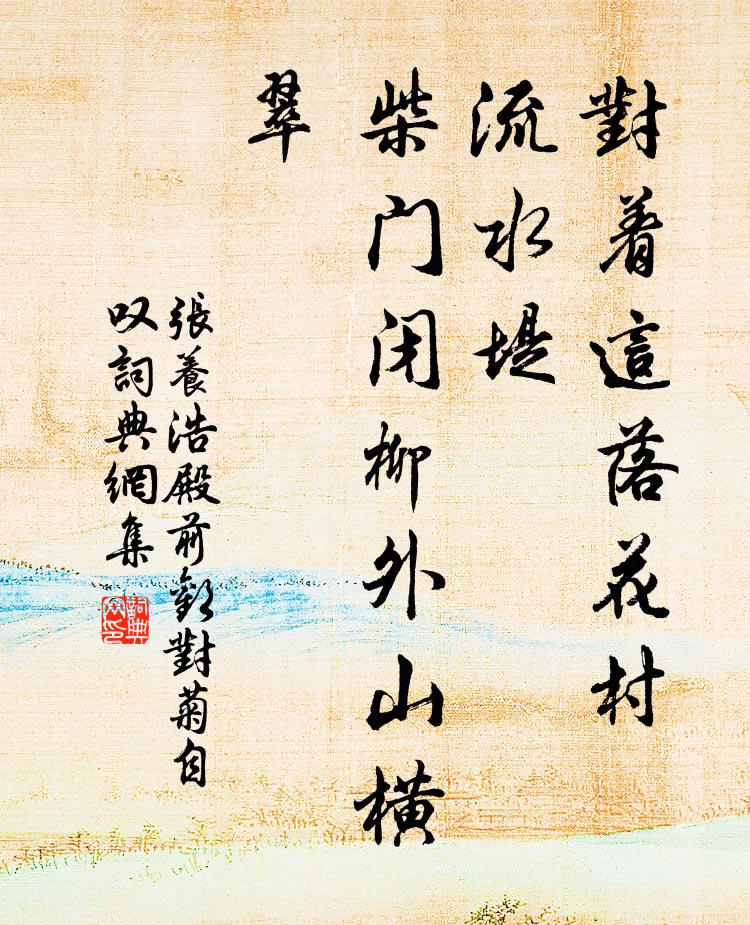 對着這落花村
流水堤
柴门闭柳外山橫
翠
張養浩殿前歡對菊自
叹詞典網集
詞典网印